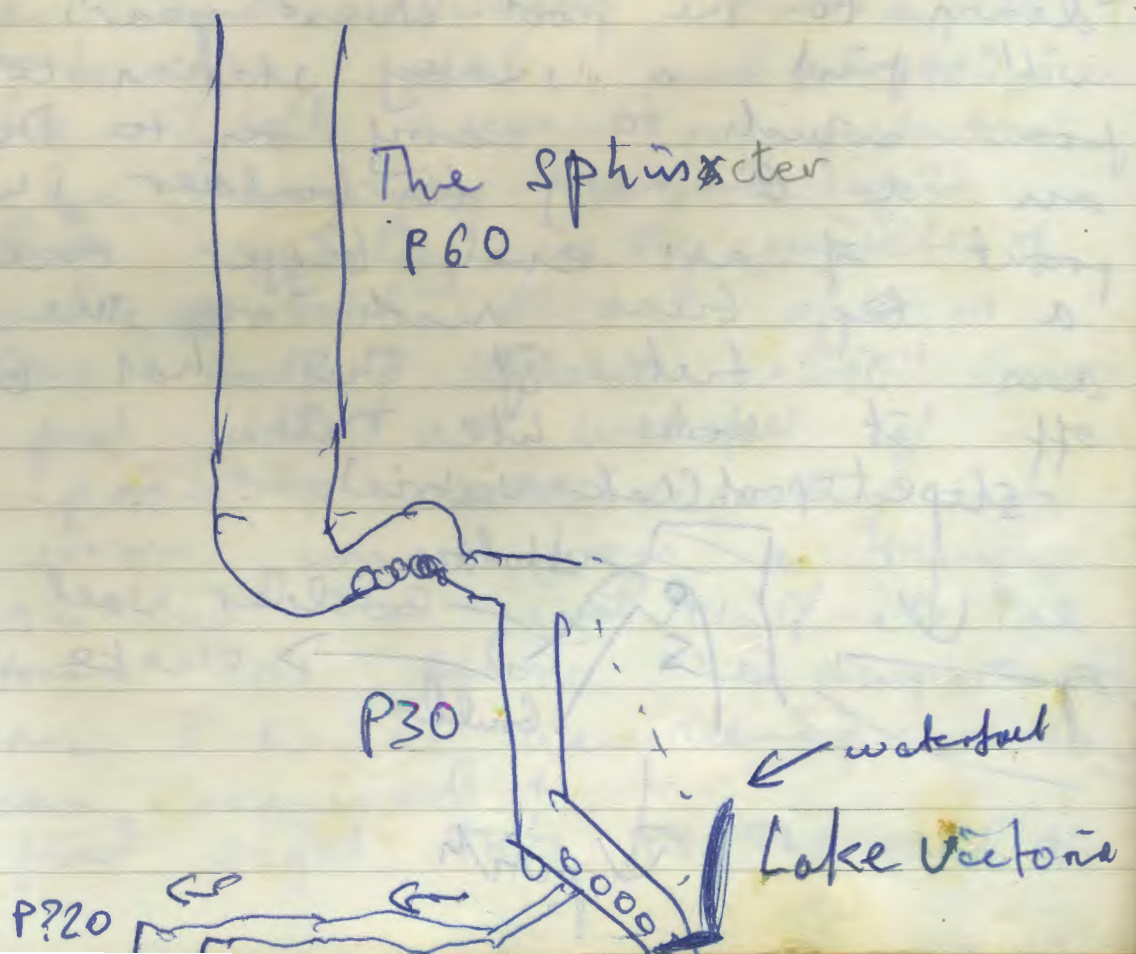 The sphincter
P60
P30
waterfall
Lake Victoria
P?20